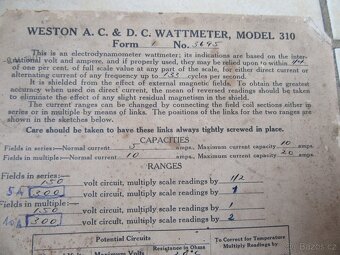 WESTON A. C. & D. C. WATTMETER, MODEL 310
Form No. 3695
This is an electrodynamometer wattmeter; its indications are based on the inter-
national volt and ampere, and if properly used, they may be relied upon to within 1/4
of one per cent. of full scale value at any part of the scale, for either direct current or
alternating current of any frequency up to 133 cycles per second.
It is shielded from the effect of external magnetic fields. To obtain the greatest
accuracy when used on direct current, the mean of reversed readings should be taken to
eliminate the effect of any slight residual magnetism in the shield.
The current ranges can be changed by connecting the field coil sections either in
series or in multiple by means of links. The positions of the links for the two ranges are
shown in the sketches below.
Care should be taken to have these links always tightly screwed in place.
CAPACITIES
Fields in series: Normal current 5 amps. Maximum current capacity 10 amps.
Fields in multiple: Normal current 10 amps. Maximum current capacity 20 amps.
RANGES
Fields in series:
150 volt circuit, multiply scale readings by 1/2
5A 300 volt circuit, multiply scale readings by 1
Fields in multiple:
150 volt circuit, multiply scale readings by 1
10A 300 volt circuit, multiply scale readings by 2
Potential Circuits
Maximum Volts
Resistance in Ohms
To Correct for Temperature
Multiply Readings by